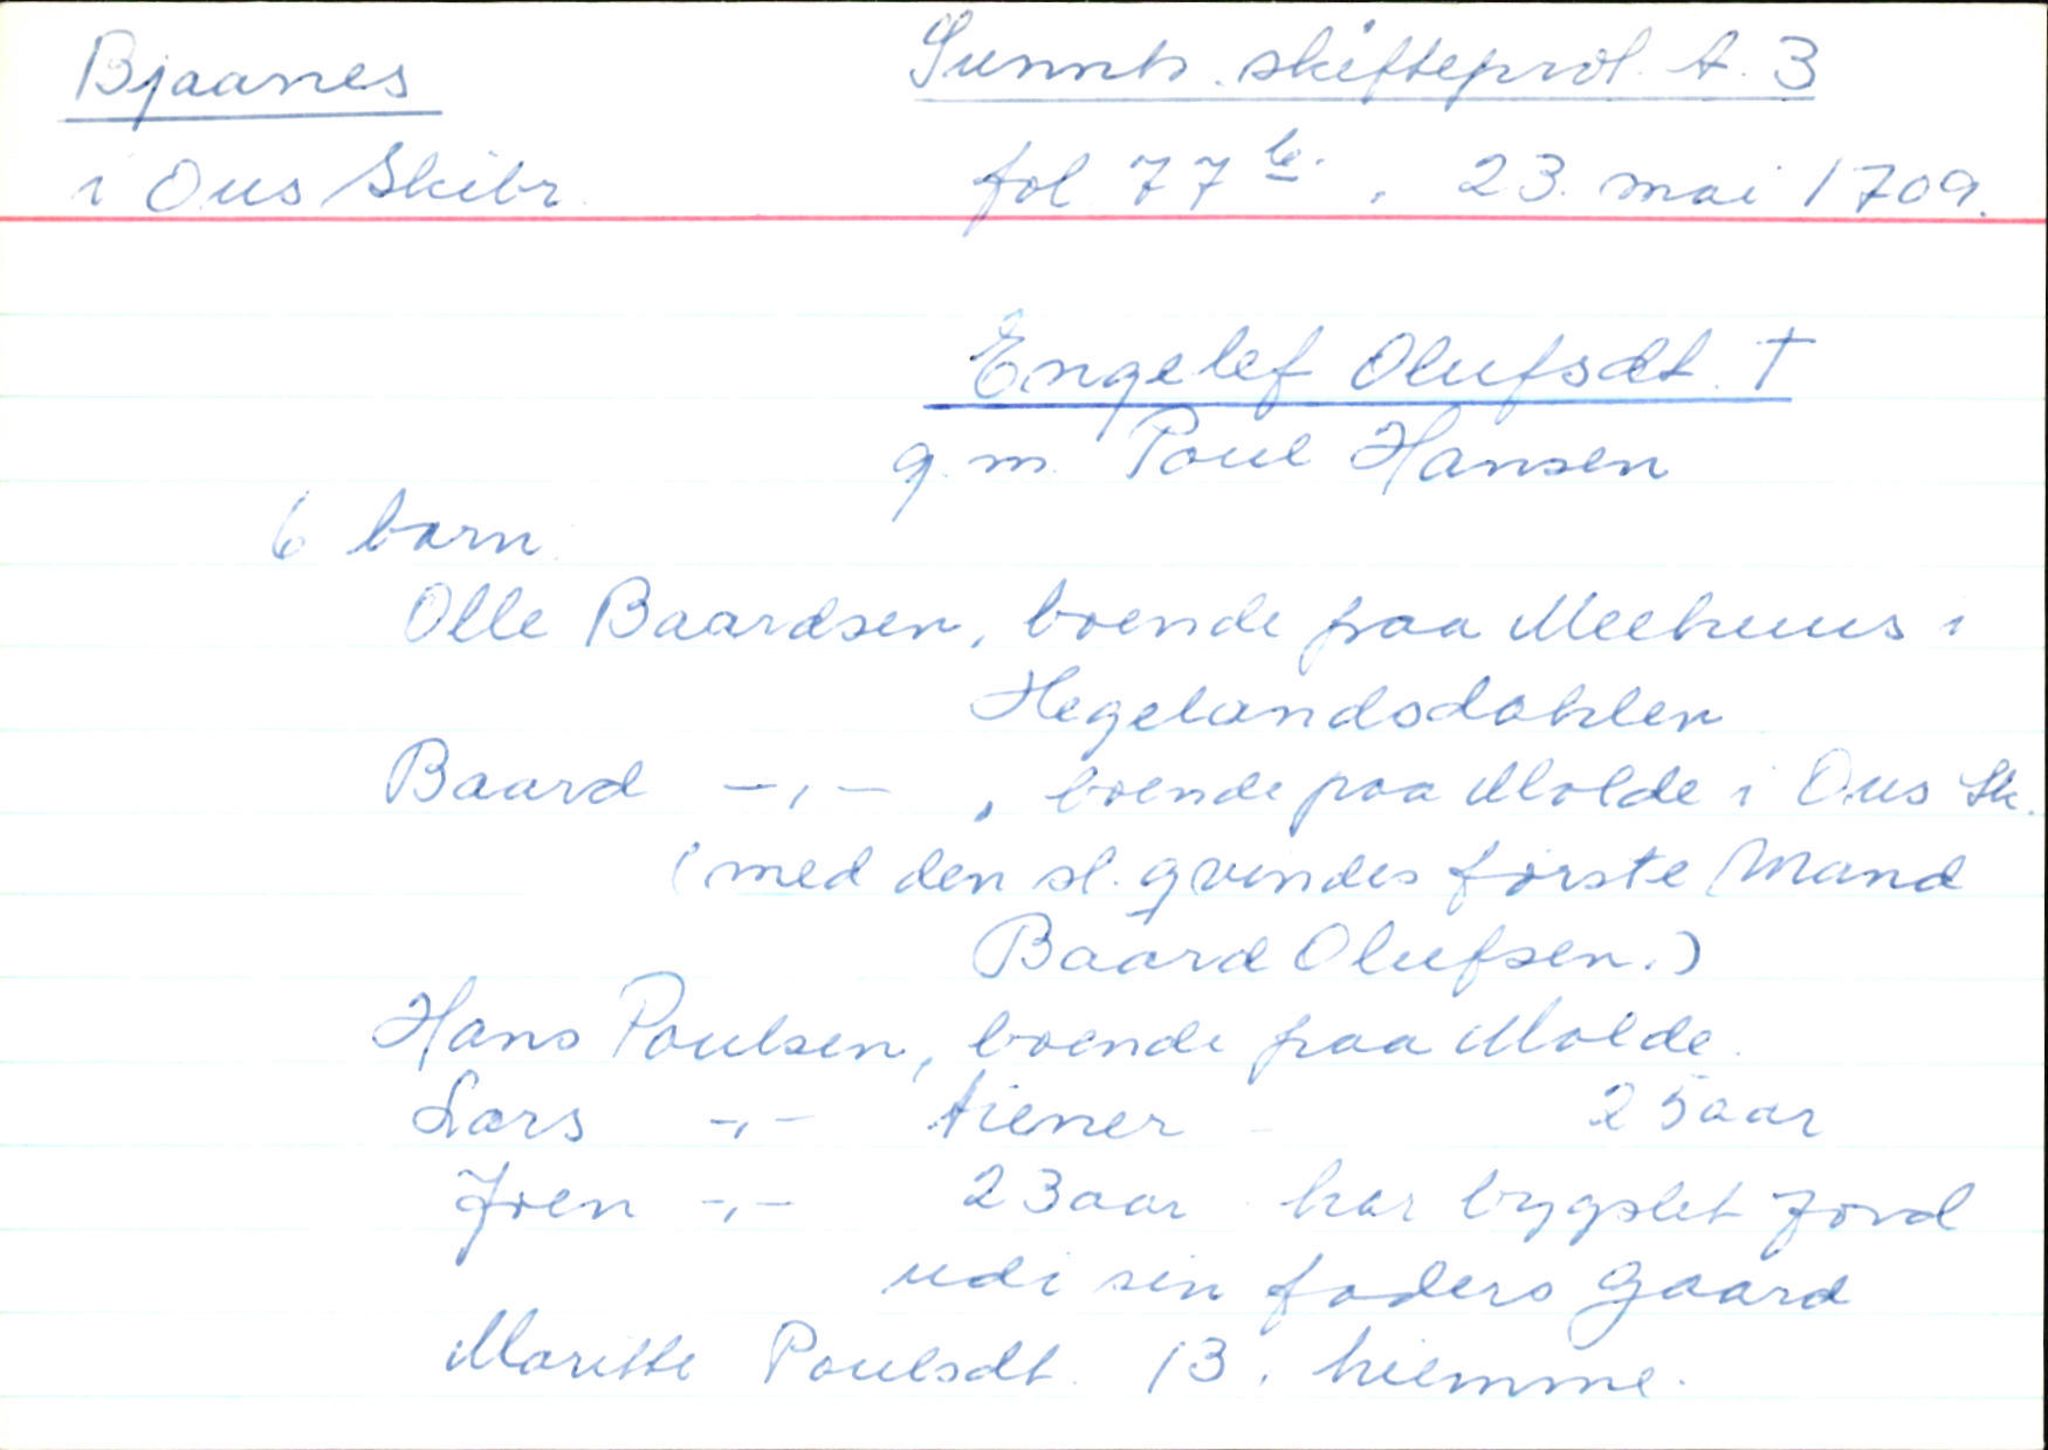 Bjaanes
Sunnh. skifteprot. A. 3
i Ous Skibr.
fol 77 b. , 23. mai 1709.
Engelef Olufsdt. †
g. m. Poul Hansen
6 barn.
Olle Baardsen, boende paa Meehuus i
Hegelandsdahlen
Baard -,- , boende paa Molde i Ous Sk.
(med den sl. qvindes første Mand
Baard Olufsen.)
Hans Poulsen, boende paa Molde.
Lars -,- tiener - 25 aar
Joen -,- 23 aar har bygslet Jord
udi sin faders Gaard
Maritte Poulsdt. 13. hiemme.